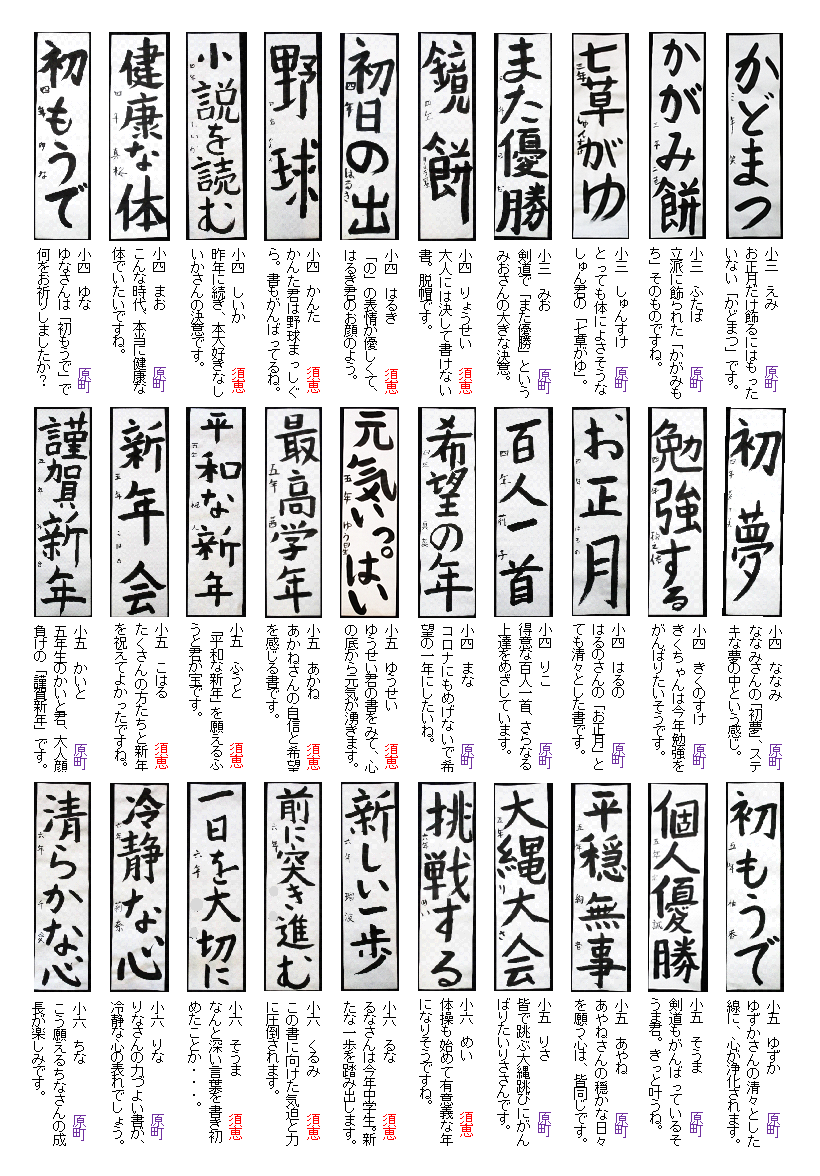 かどまつ
小三　えみ　原町
お正月だけ飾るにはもった
いない「かどまつ」です。
かがみ餅
小三　ふたば　原町
立派に飾られた「かがみも
ち」そのものですね。
七草がゆ
小三　しゅんすけ　原町
とっても体によさそうな
しゅん君の「七草がゆ」。
また優勝
小三　みお　原町
剣道で「また優勝」という
みおさんの大きな決意。
鏡餅
小四　りょうせい　須恵
大人には決して書けない
書。脱帽です。
初日の出
小四　はるき　須恵
「の」の表情が優しくて、
はるき君のお顔のよう。
野球
小四　かんた　須恵
かんた君は野球まっしぐ
ら。書もがんばってるね。
小説を読む
小四　しいか　須恵
昨年に続き、本大好きなし
いかさんの決意です。
健康な体
小四　まお　原町
こんな時代、本当に健康な
体でいたいですね。
初もうで
小四　ゆな　原町
ゆなさんは「初もうで」で
何をお祈りしましたか？
初夢
小四　ななみ　原町
ななみさんの「初夢」、ステ
キな夢の中という感じ。
勉強する
小四　きくのすけ　原町
きくちゃんは今年勉強を
がんばりたいそうです。
お正月
小四　はるの　原町
はるのさんの「お正月」と
ても清々とした書です。
百人一首
小四　りこ　原町
得意な百人一首、さらなる
上達をめざしています。
希望の年
小四　まな　原町
コロナにもめげないで希
望の一年にしたいね。
元気いっぱい
小五　ゆうせい　須恵
ゆうせい君の書をみて、心
の底から元気が湧きます。
最高学年
小五　あかね　須恵
あかねさんの自信と希望
を感じる書です。
平和な新年
小五　ふうと　須恵
「平和な新年」を願えるふ
うと君が宝です。
新年会
小五　こはる　須恵
たくさんの方たちと新年
を祝えてよかったですね。
謹賀新年
小五　かいと　原町
五年生のかいと君、大人顔
負けの「謹賀新年」です。
初もうで
小五　ゆずか　原町
ゆずかさんの清々とした
線に、心が浄化されます。
個人優勝
小五　そうま　原町
剣道もがんばっているそ
うま君。きっと叶うね。
平穏無事
小五　あやね　原町
あやねさんの穏かな日々
を願う心は、皆同じです。
大縄大会
小五　りさ　原町
皆で跳ぶ大縄跳びにがん
ばりたいりささんです。
挑戦する
小六　めい　須恵
体操も始めて有意義な年
になりそうですね。
新しい一歩
小六　るな　須恵
るなさんは今年中学生。新
たな一歩を踏み出します。
前に突き進む
小六　くるみ　須恵
この書に向けた気迫と力
に圧倒されます。
一日を大切に
小六　そうま　須恵
なんと深い言葉を書き初
めたことか・・・。
冷静な心
小六　りな　原町
りなさんの力づよい書が、
冷静な心の表れでしょう。
清らかな心
小六　ちな　原町
こう願えるちなさんの成
長が楽しみです。